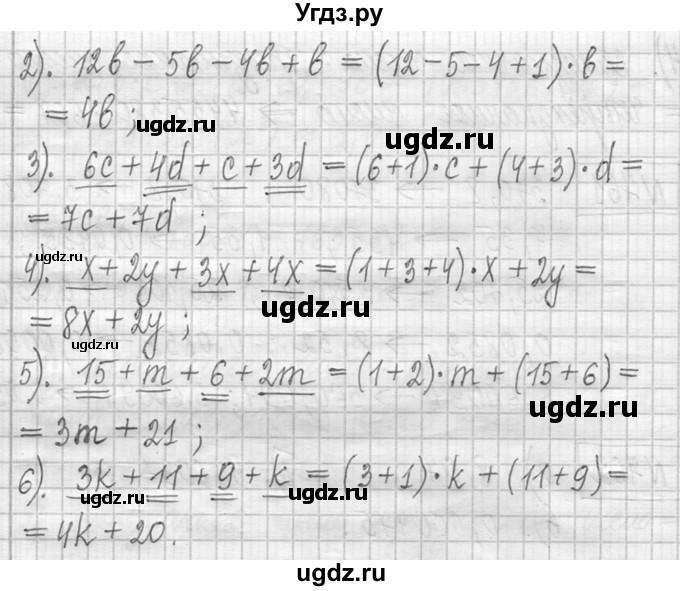 Угдз.ру
2). 12в − 5в − 4в + в = (12−5−4+1)·в =
= 4в ;
ugdz.ru
ugdz.ru
3). 6c + 4d + c + 3d = (6+1)·c + (4+3)·d =
= 7c + 7d ;
ugdz.ru
ugdz.ru
4). x + 2y + 3x + 4x = (1+3+4)·x + 2y =
ugdz.ru
= 8x + 2y ;
ugdz.ru
ugdz.ru
5). 15 + m + 6 + 2m = (1+2)·m + (15+6) =
ugdz.ru
= 3m + 21 ;
ugdz.ru
6). 3k + 11 + 9 + k = (3+1)·k + (11+9) =
ugdz.ru
= 4k + 20.
ugdz.ru
ugdz.ru